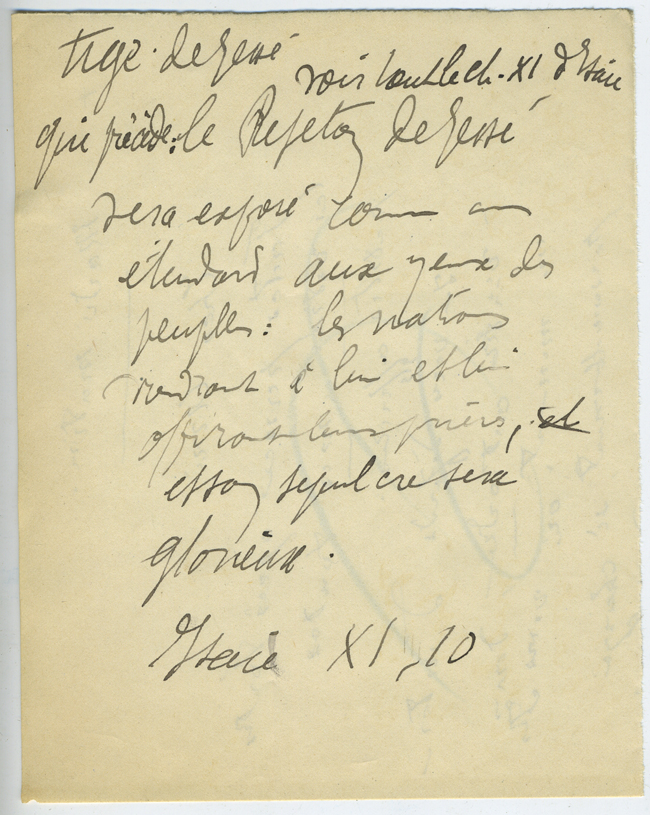 tige de Jessé
voir tout le ch. XI d'Isaïe
qui précède: le Rejeton de Jessé
sera exposé comme un
étendard aux yeux des
peuples: les nations
viendront à lui et lui
offriront leurs prières, et
et son sepulcre sera
glorieux.
Isaïe XI, 10